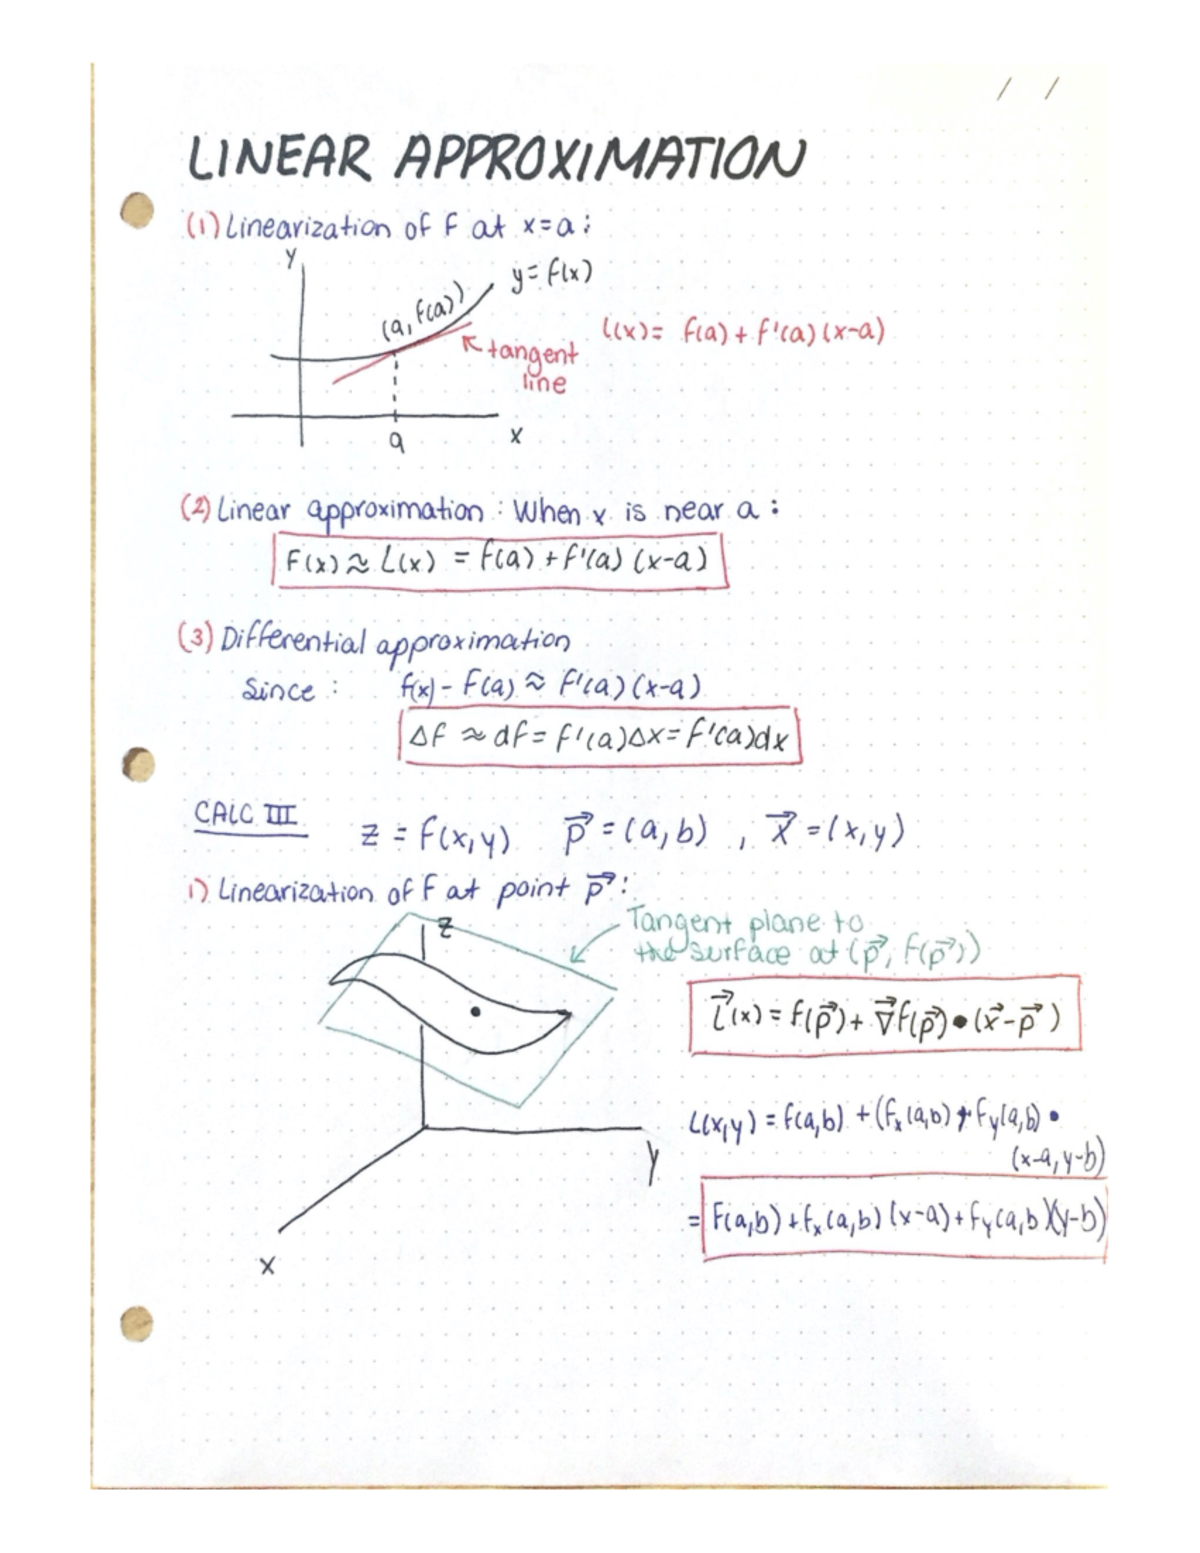 / /
LINEAR APPROXIMATION
(1) Linearization of f at x=a:
y
y = f(x)
(a, f(a))
L(x) = f(a) + f'(a) (x-a)
tangent
line
a
x
(2) Linear approximation : When x is near a :
f(x) ≈ L(x) = f(a) + f'(a) (x-a)
(3) Differential approximation
Since : f(x) - f(a) ≈ f'(a) (x-a)
Δf ≈ df = f'(a)Δx = f'(a)dx
CALC III z = f(x,y) p⃗ = (a,b) , x⃗ = (x,y)
1) Linearization of f at point p⃗ :
z
Tangent plane to
the surface at (p⃗, f(p⃗))
L⃗(x) = f(p⃗) + ∇⃗f(p⃗) • (x⃗-p⃗)
L(x,y) = f(a,b) + (fx(a,b) + fy(a,b) •
(x-a, y-b)
y
= f(a,b) + fx(a,b) (x-a) + fy(a,b)(y-b)
x